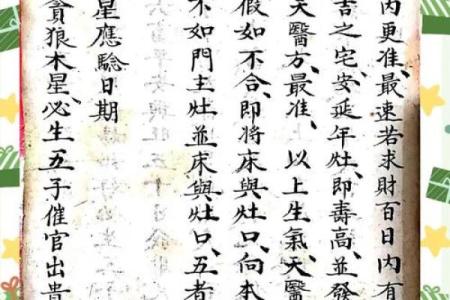 內更准、最速若求財百日內有
吉之宅、安延年灶、即壽高、並發
天醫方、最准、以上生氣、天醫
假如不合、即將床與灶口、向本
不如門主灶並床與灶口、五者
星應騐日期
貪狼木星、必生五子催官出貴